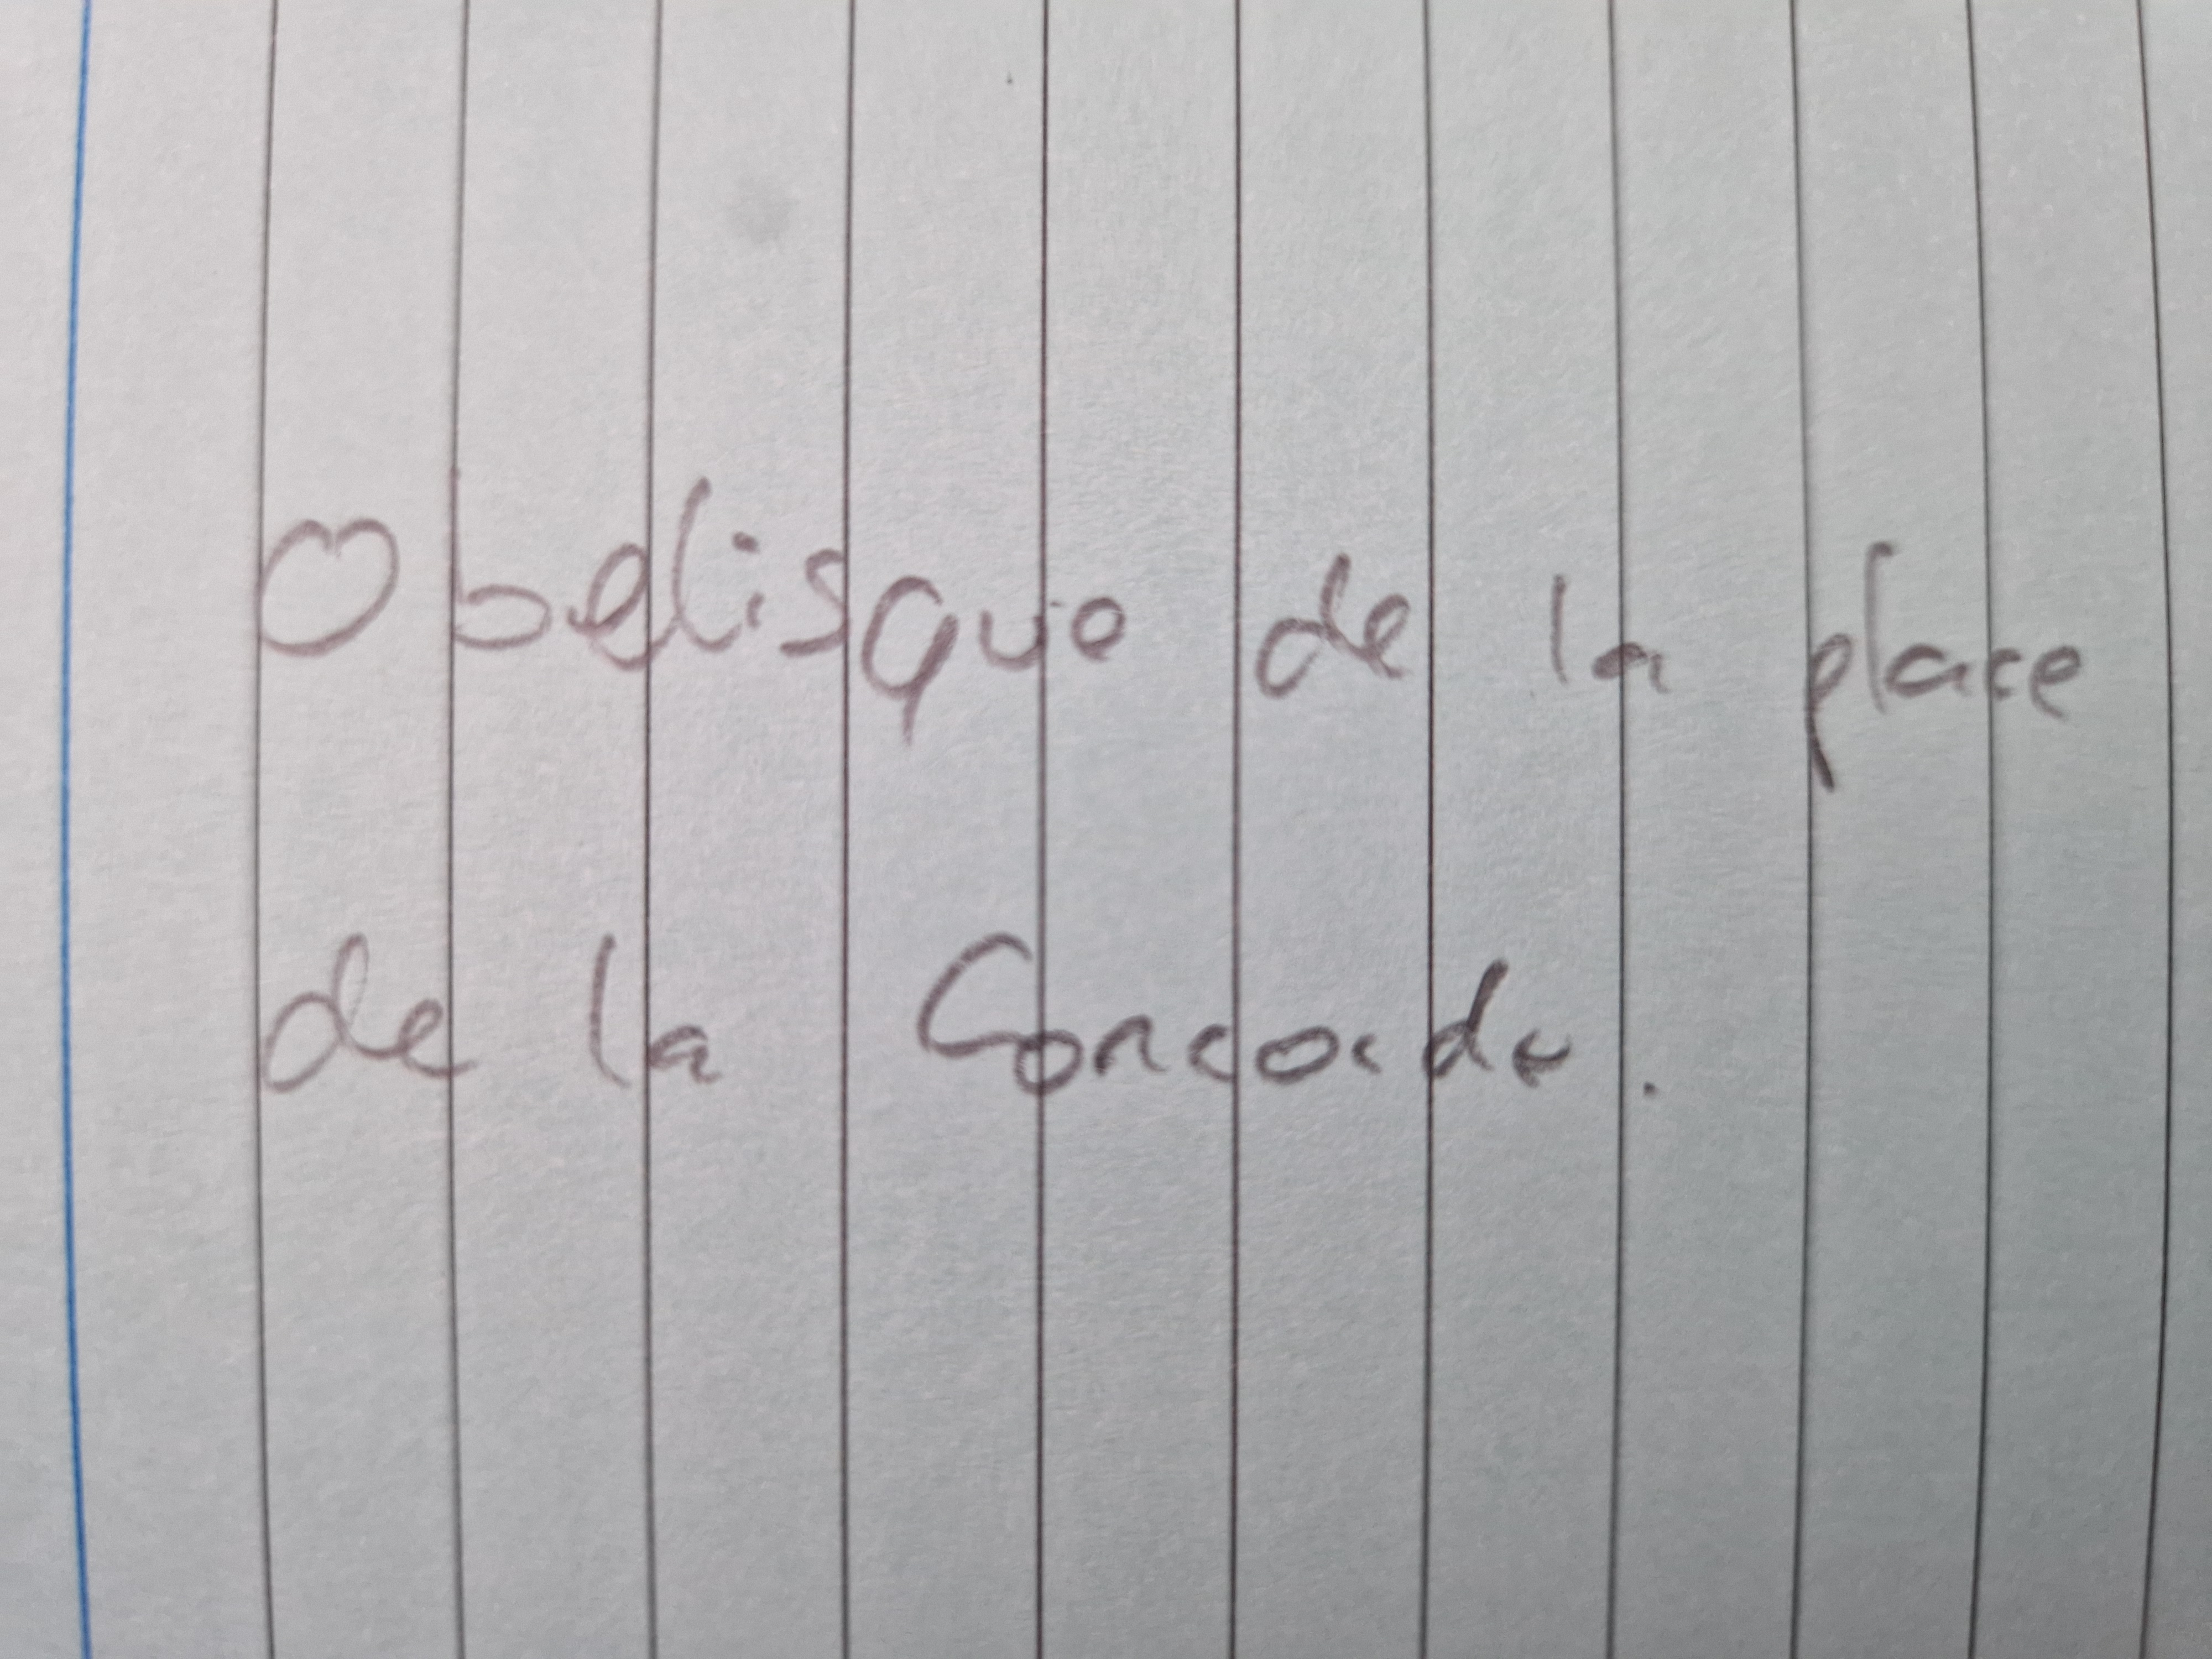 Obelisque de la place
de la Concorde